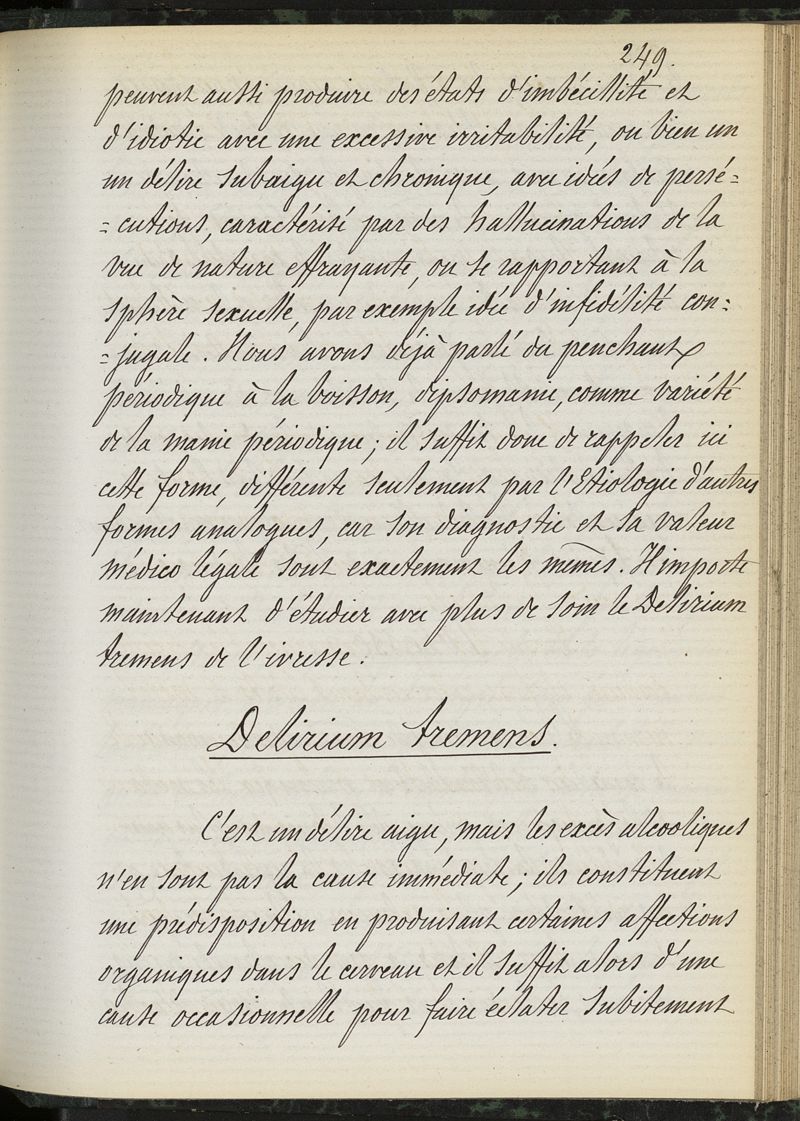 249.
peuvent aussi produire des états d'imbécillité et
d'idiotie avec une excessive irritabilité, ou bien un
un délire subaigu et chronique, avec idées de persé=
=cutions, caractérisé par des hallucinations de la
vue de nature effrayante, ou se rapportant à la
sphère sexuelle, par exemple idée d'infidélité con=
=jugale. Nous avons déjà parlé du penchant
périodique à la boisson, dipsomanie, comme variété
de la manie périodique; il suffit donc de rappeler ici
cette forme, différente seulement par l'Etiologie d'autres
formes analogues, car son diagnostic et sa valeur
médico légale sont exactement les mêmes. Il importe
maintenant d'étudier avec plus de soin le Delirium
tremens de l'ivresse.
Delirium tremens.
C'est un délire aigu, mais les excès alcooliques
n'en sont pas la cause immédiate; ils constituent
une prédisposition en produisant certaines affections
organiques dans le cerveau et il suffit alors d'une
cause occasionnelle pour faire éclater subitement